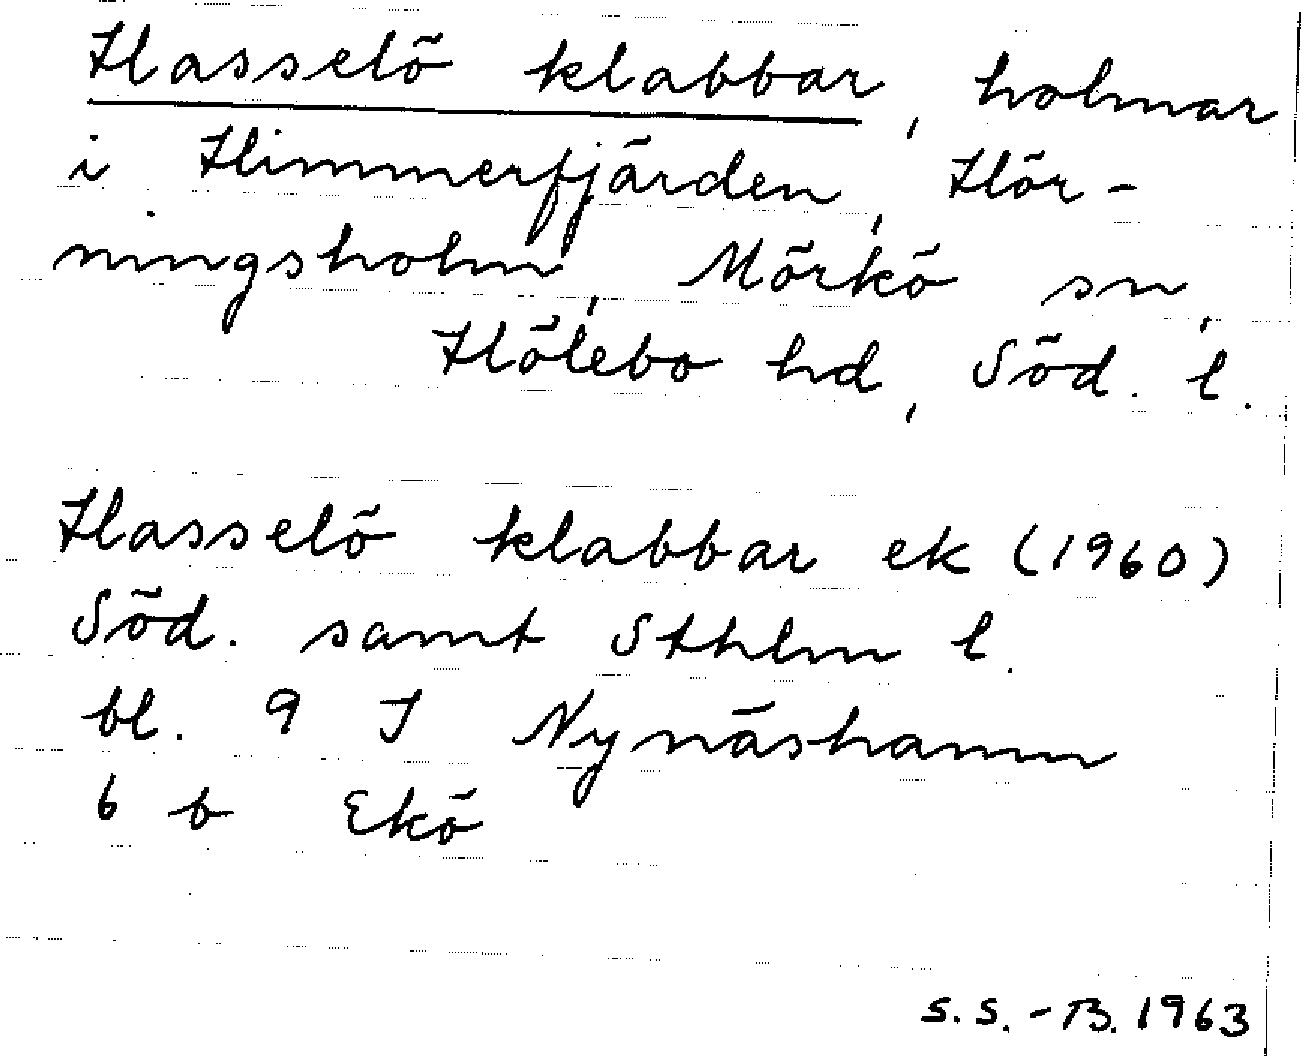 Hasselö klabbar, holmar
i Himmerfjärden, Hör-
ningsholm, Mörkö sn,
Hölebo hd, Söd. l.
Hasselö klabbar ek (1960)
Söd. samt Sthlm l.
bl. 9 I Nynäshamn
6 b Ekö
S.S.-B. 1963